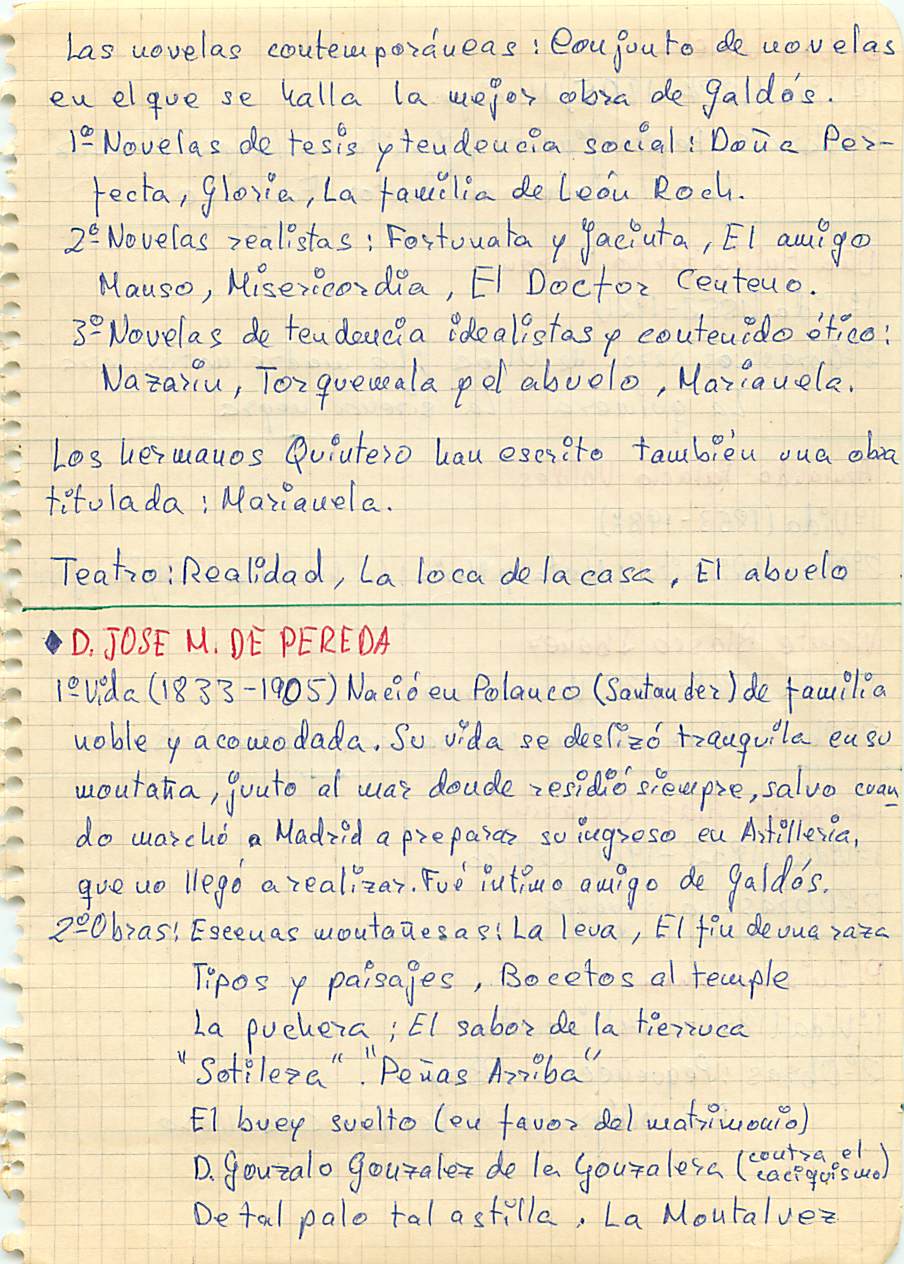 Las novelas contemporáneas: Conjunto de novelas
en el que se halla la mejor obra de Galdós.
1º Novelas de tesis y tendencia social: Doña Per-
fecta, Gloria, La familia de León Roch.
2º Novelas realistas: Fortunata y Jacinta, El amigo
Manso, Misericordia, El Doctor Centeno.
3º Novelas de tendencia idealistas y contenido ético:
Nazarin, Torquemala y el abuelo, Marianela.
Los hermanos Quintero han escrito también una obra
titulada: Marianela.
Teatro: Realidad, La loca de la casa, El abuelo
D. JOSE M. DE PEREDA
1º Vida (1833-1905) Nació en Polanco (Santander) de familia
noble y acomodada. Su vida se deslizó tranquila en su
montaña, junto al mar donde residió siempre, salvo cuan
do marchó a Madrid a preparar su ingreso en Artilleria,
que no llegó a realizar. Fué intimo amigo de Galdós.
2º Obras: Escenas montañesas: La leva, El fin de una raza
Tipos y paisajes, Bocetos al temple
La puchera; El sabor de la tierruca
"Sotileza". "Peñas Arriba"
El buey suelto (en favor del matrimonio)
D. Gonzalo Gonzalez de la Gonzalera (contra el caciquismo)
De tal palo tal astilla. La Montalvez